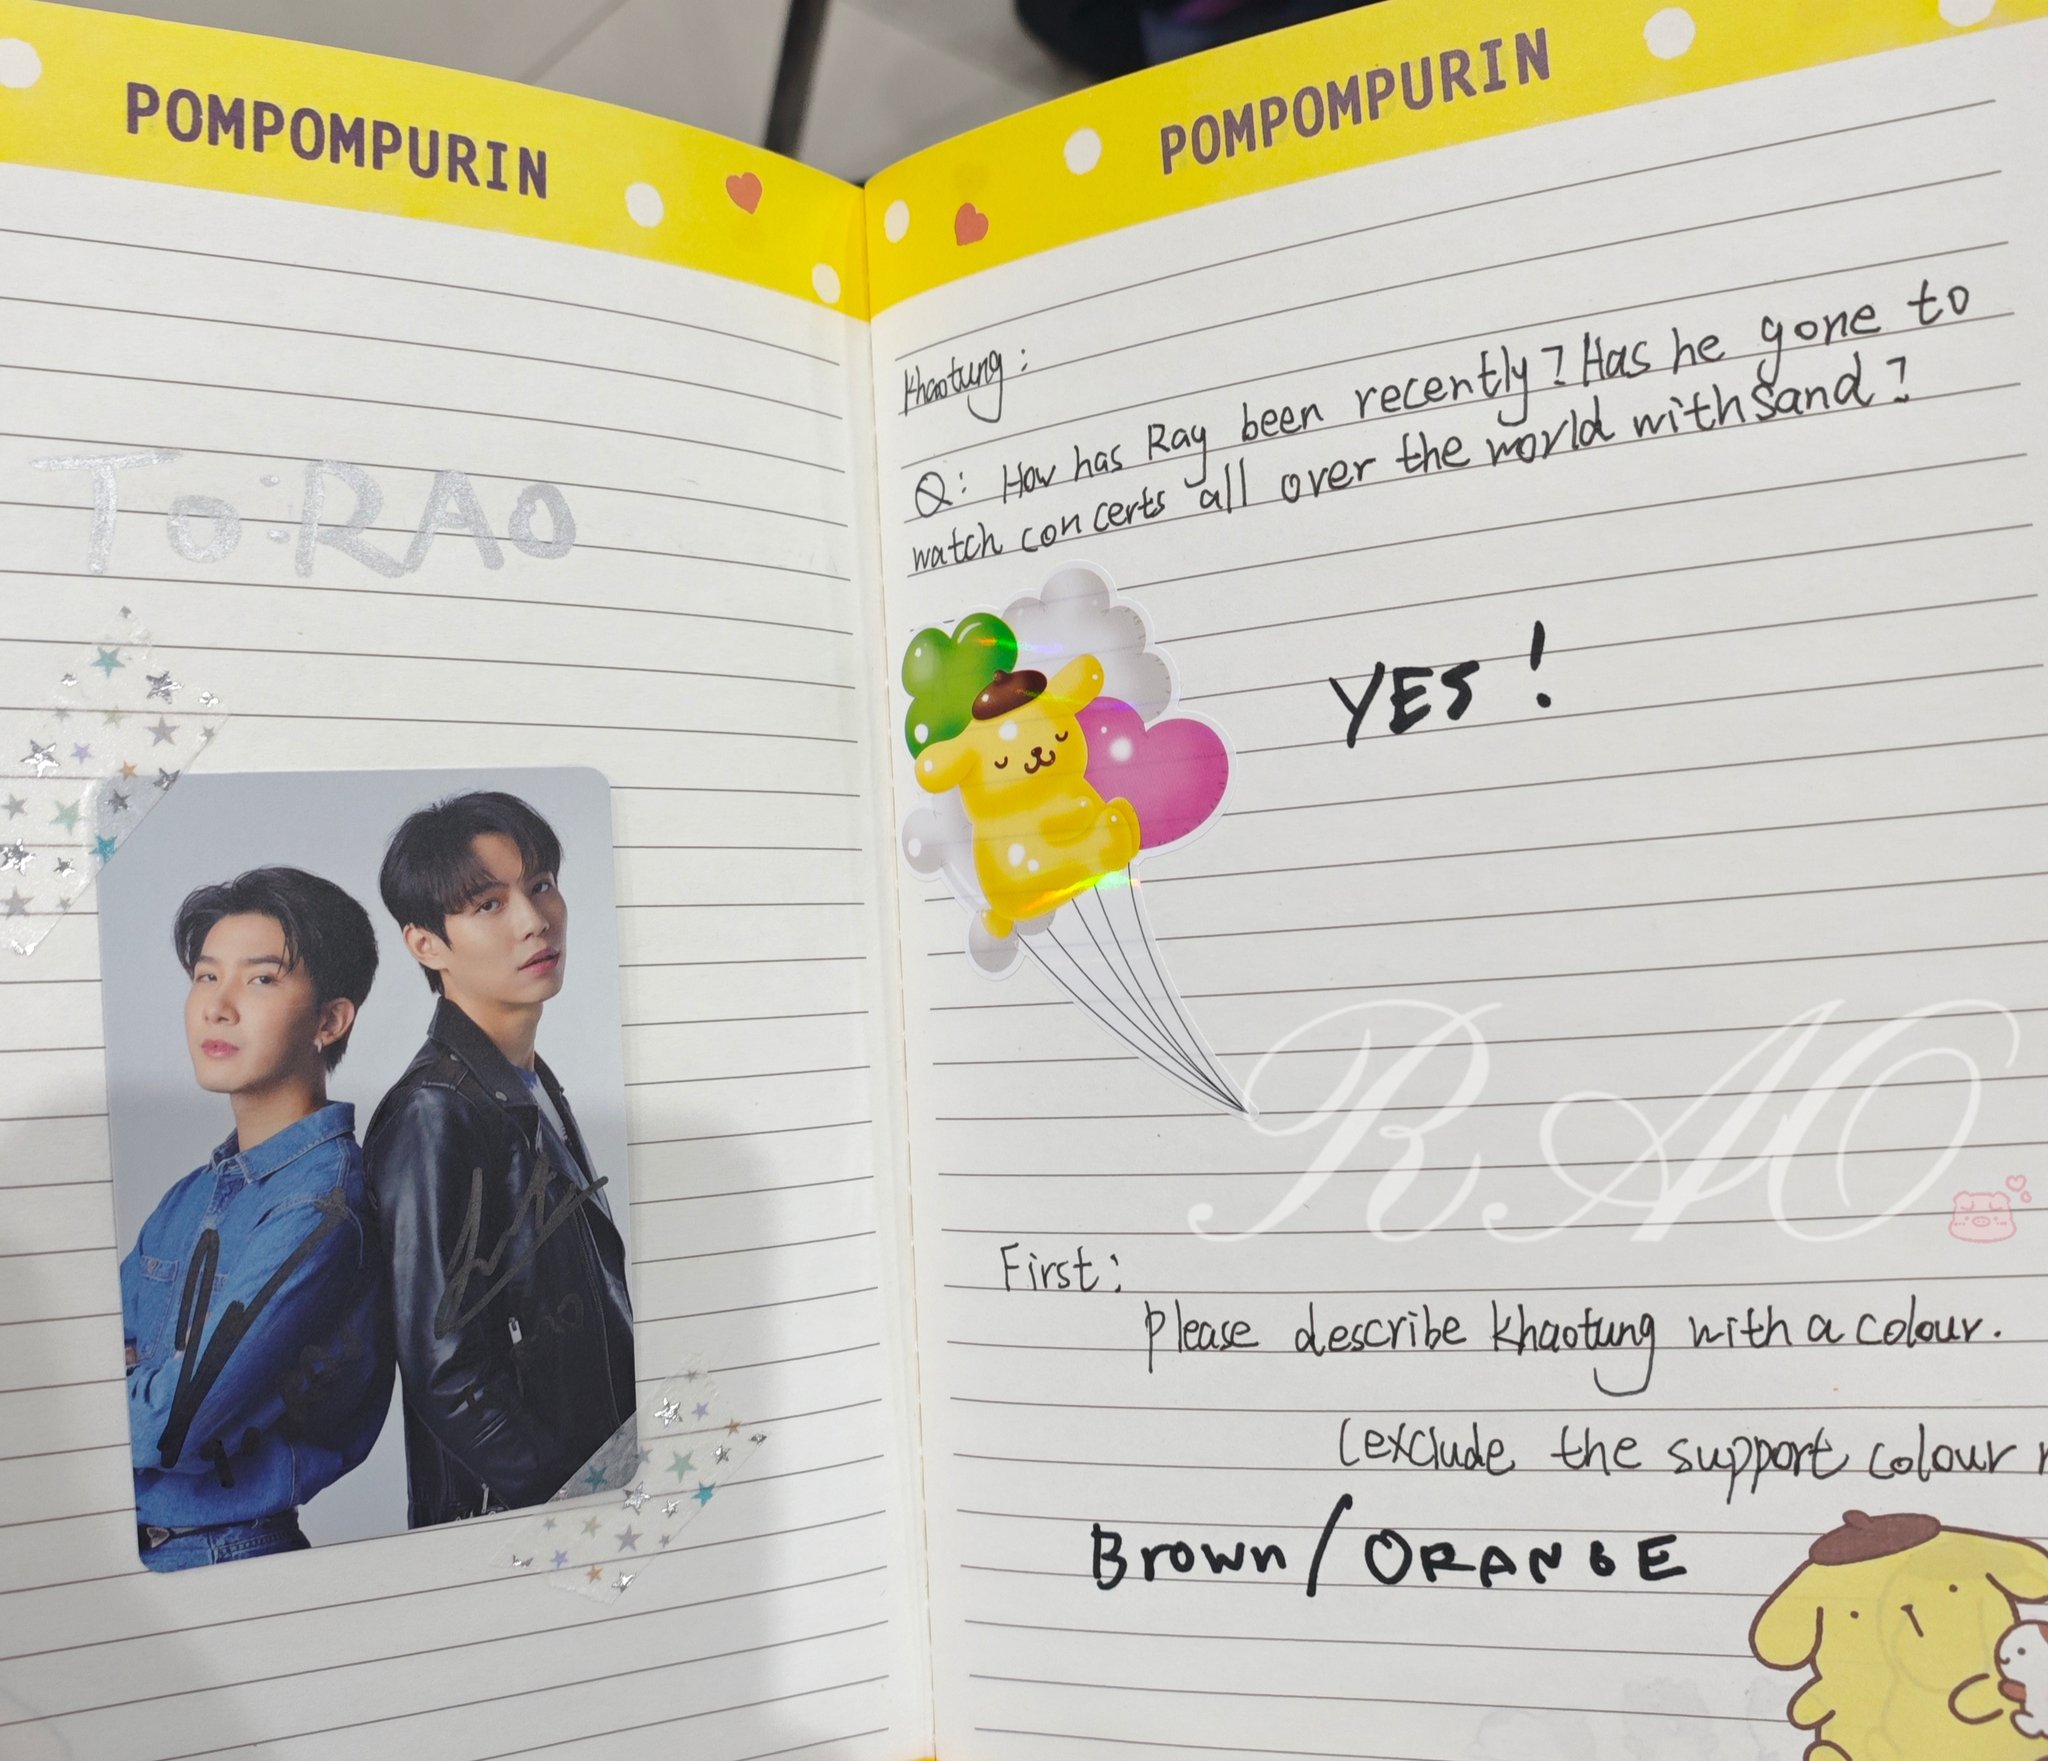 POMPOMPURIN
To:RAO
POMPOMPURIN
Khaotung:
Q: How has Ray been recently? Has he gone to
watch concerts all over the world with Sand?
YES!
RAO
First:
please describe Khaotung with a colour.
(exclude the support colour
Brown/ORANGE